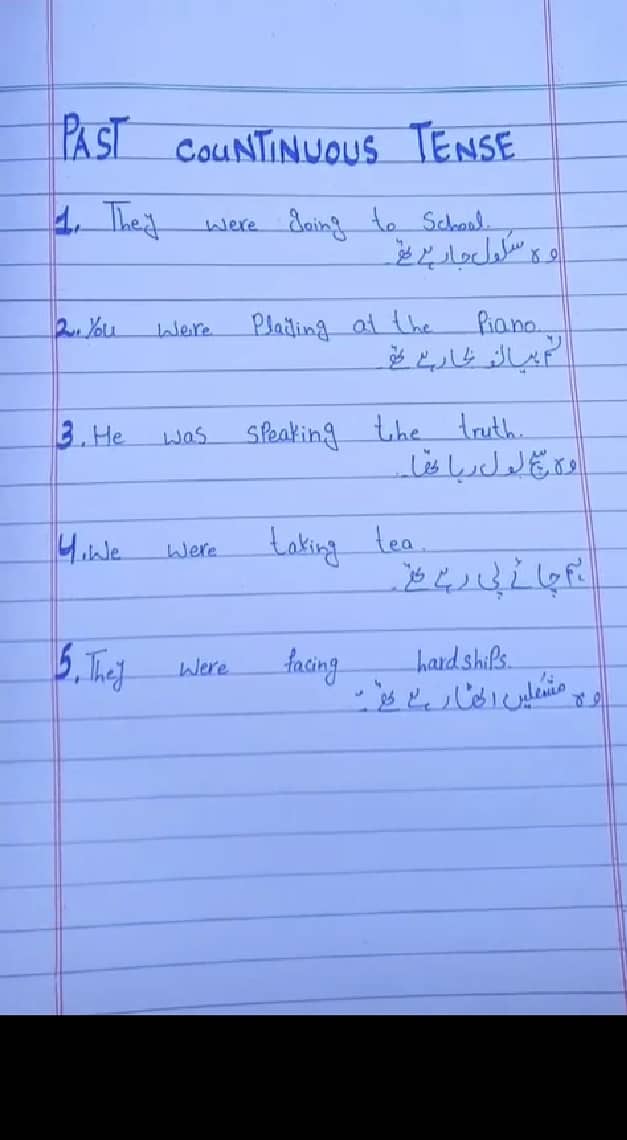 PAST COUNTINUOUS TENSE
1. They were going to School.
وہ سکول جا رہے تھے۔
2. You were Playing at the Piano.
تم پیانو بجا رہے تھے
3. He was speaking the truth.
وہ سچ بول رہا تھا۔
4. We were taking tea.
ہم چائے پی رہے تھے۔
5. They were facing hardships.
وہ مشکلیں اٹھا رہے تھے۔